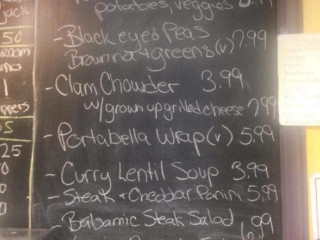 jack
potatoes, veggies
50
- Black eyed Peas
Brown rice + greens (v) 7.99
- Clam Chowder 3.99
w/ grown up grilled cheese 7.99
- Portabella Wrap (v) 5.99
25
- Curry Lentil Soup 3.99
- Steak + Cheddar Panini 5.99
Balsamic Steak Salad